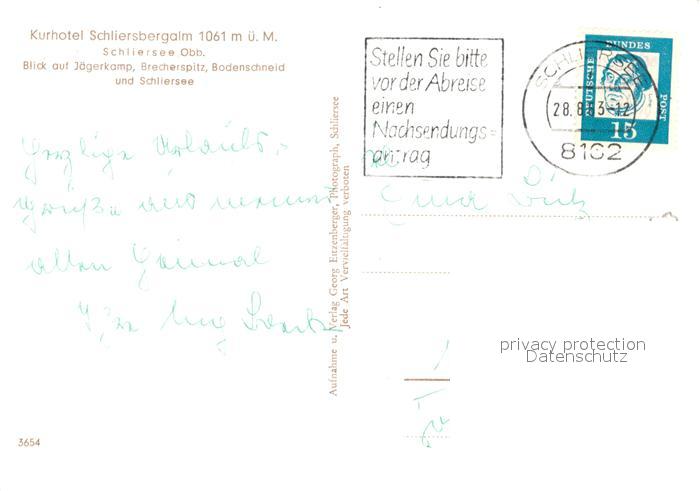 Kurhotel Schliersbergalm 1061 m ü. M.
Schliersee Obb.
Blick auf Jägerkamp, Brecherspitz, Bodenschneid
und Schliersee
Herzliche Urlaubs-
grüße aus meiner
alten Heimat
3654
Aufnahme u. Verlag Georg Eitzenberger, Photograph, Schliersee
Jede Art Vervielfältigung verboten
Stellen Sie bitte
vor der Abreise
einen
Nachsendungs=
antrag
SCHLIERSEE
28.8.63-12
8162
DEUTSCHE
BUNDES
POST
15
privacy protection
Datenschutz